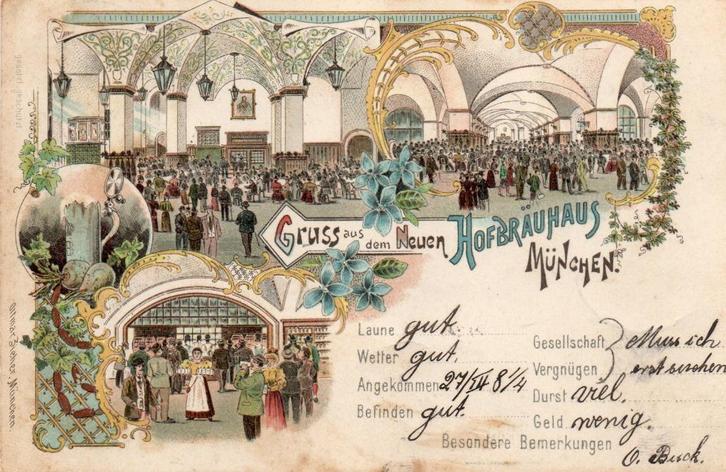 Gruss aus dem Neuen HOFBRÄUHAUS
MÜNCHEN.
Laune gut.
Wetter gut.
Angekommen 27/VI 8 1/4
Befinden gut.
Gesellschaft } Muss ich
Vergnügen } erst suchen
Durst viel.
Geld wenig.
Besondere Bemerkungen
O. Buck.